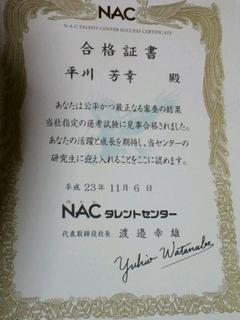 NAC
N·A·C TALENT CENTER SUCCESS CERTIFICATE
合格証書
平川 芳幸 殿
あなたは公平かつ厳正なる審査の結果
当社指定の選考試験に見事合格されました。
あなたの活躍と成長を期待し、当センターの
研究生に迎え入れることをここに認めます。
平成 23年 11月 6日
NAC タレントセンター
代表取締役社長 渡邉幸雄
Yukio Watanabe